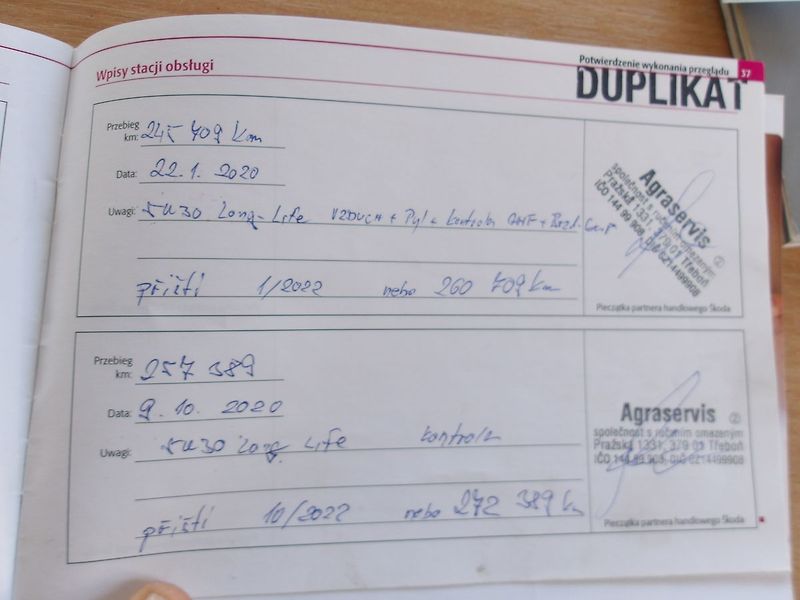 Wpisy stacji obsługi
Potwierdzenie wykonania przeglądu 37
DUPLIKAT
Przebieg
km: 245 709 km
Data: 22.1. 2020
Uwagi: 5W30 Long-Life VZDUCH + Pyl + kontrola
příští 1/2022 nebo 260 709 km
Agraservis
společnost s ručením omezeným
Pražská 1331, 379 01 Třeboň
IČO 144 99 908, DIČ 6214499908
Pieczątka partnera handlowego Škoda
Przebieg
km: 257 389
Data: 9. 10. 2020
Uwagi: 5W30 Long Life kontrola
příští 10/2022 nebo 272 389 km
Agraservis 2
společnost s ručním omezeným
Pražská 1331, 379 01 Třeboň
IČO 144 99 908, DIČ 6214499908
Pieczątka partnera handlowego Škoda